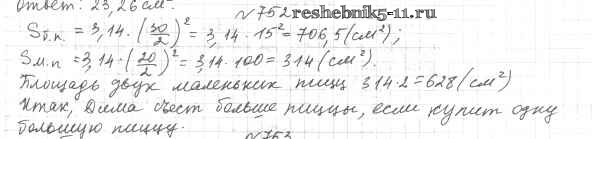 Ответ: 23,26 см².
№752 reshebnik5-11.ru
Sб.п. = 3,14 · (30/2)² = 3,14 · 15² = 706,5 (см²);
Sм.п = 3,14 · (20/2)² = 3,14 · 100 = 314 (см²).
Площадь двух маленьких пицц 314·2=628 (см²)
Итак, Дима съест больше пиццы, если купит одну
большую пиццу.
№753